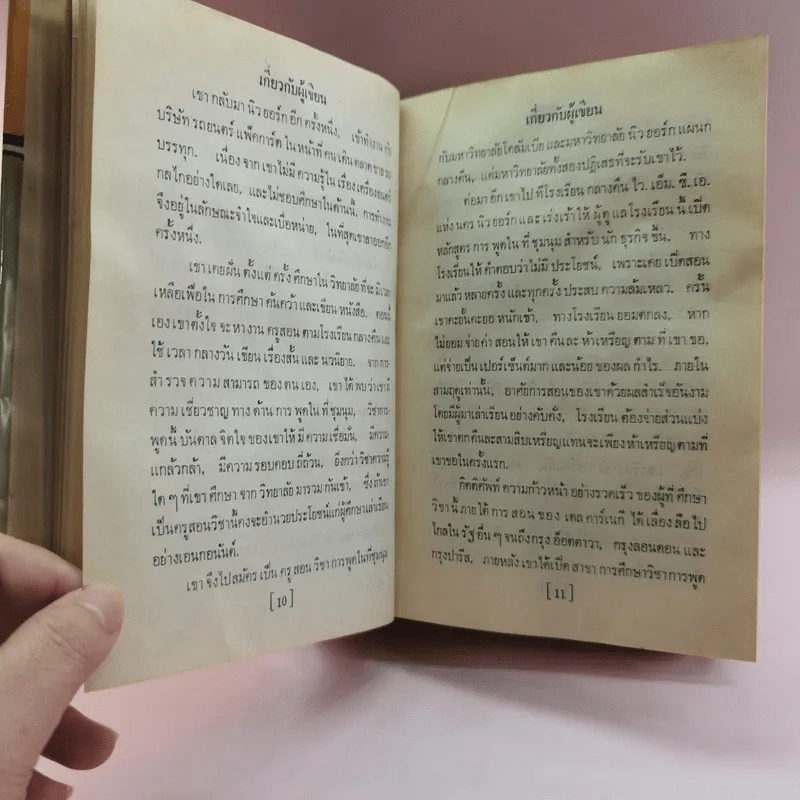 เกี่ยวกับผู้เขียน
เขา กลับมา นิว ยอร์ก อีก ครั้งหนึ่ง, เข้าทำงาน กับ
บริษัท รถยนตร์ แพ็คการ์ด ใน หน้าที่ คน เดิน ตลาด ขาย รถ
บรรทุก. เนื่อง จาก เขาไม่มี ความรู้ ใน เรื่อง เครื่องยนตร์
กลไกอย่างใดเลย, และไม่ชอบศึกษาในด้านนี้. การทำงาน
จึงอยู่ในลักษณะจำใจและเบื่อหน่าย, ในที่สุดเขาลาออกอีก
ครั้งหนึ่ง.
เขา เคยฝัน ตั้งแต่ ครั้ง ศึกษาใน วิทยาลัย ที่จะ มี เวลา
เหลือเฟือใน การศึกษา ค้นคว้า และเขียน หนังสือ. ตอนนี้
เอง เขาตั้งใจ จะหางาน ครูสอน ตามโรงเรียน กลางคืน และ
ใช้ เวลา กลางวัน เขียน เรื่องสั้น และ นวนิยาย. จาก การ-
สำ รวจ ความ สามารถ ของ ตน เอง, เขา ได้ พบว่า เขามี
ความ เชี่ยวชาญ ทาง ด้าน การ พูดใน ที่ ชุมนุม, วิชาการ-
พูดนี้ บันดาล จิตใจ ของเขาให้ มี ความ เชื่อมั่น, มีความ-
แกล้วกล้า, มีความ รอบคอบ ถี่ถ้วน, ยิ่งกว่า วิชาความรู้
ใด ๆ ที่เขา ศึกษา จาก วิทยาลัย มารวม กันเข้า, ซึ่ง ถ้าเขา
เป็นครูสอนวิชานี้คงจะอำนวยประโยชน์แก่ผู้ศึกษาเล่าเรียน
อย่างเอนกอนันต์.
เขา จึงไปสมัคร เป็น ครู สอน วิชา การพูดในที่ชุมนุม
[ 10 ]
เกี่ยวกับผู้เขียน
กับมหาวิทยาลัยโคลัมเบีย และมหาวิทยาลัย นิว ยอร์ก แผนก
กลางคืน, แต่มหาวิทยาลัยทั้งสองปฏิเสธที่จะรับเขาไว้.
ต่อมา อีก เขาไป ที่โรงเรียน กลางคืน ไว. เอ็ม. ซี. เอ.
แห่ง นคร นิวยอร์ก และ เร่งเร้าให้ ผู้ดู แลโรงเรียน นี้ เปิด
หลักสูตร การ พูดใน ที่ ชุมนุม สำหรับ นัก ธุรกิจ ขึ้น. ทาง
โรงเรียนให้ คำตอบว่าไม่มี ประโยชน์, เพราะเคย เปิดสอน
มาแล้ว หลายครั้ง และทุกครั้ง ประสบ ความล้มเหลว. ครั้น
เขาคะยั้นคะยอ หนักเข้า, ทางโรงเรียน ยอมตกลง, หาก
ไม่ยอม จ่ายค่า สอนให้ เขา คืนละ ห้าเหรียญ ตาม ที่ เขา ขอ.
แต่จ่ายเป็น เปอร์เซ็นต์มาก และน้อย ของผล กำไร. ภายใน
สามฤดูเท่านั้น, อาศัยการสอนของเขาด้วยผลสำเร็จอันงาม
โดยมีผู้มาเล่าเรียน อย่างคับคั่ง, โรงเรียน ต้องจ่ายส่วนแบ่ง
ให้เขาตก คืนละสามสิบเหรียญ แทนจะเพียง ห้าเหรียญ ตามที่
เขาขอในครั้งแรก.
กิตติศัพท์ ความก้าวหน้า อย่างรวดเร็ว ของผู้ที่ ศึกษา
วิชานี้ ภายใต้ การ สอน ของ เดล คาร์เนกี ได้ เลื่อง ลือ ไป
ไกลใน รัฐ อื่น ๆ จนถึงกรุง อ็อตตาวา, กรุงลอนดอน และ
กรุงปารีส, ภายหลัง เขาได้เปิด สาขา การศึกษาวิชาการพูด
[ 11 ]